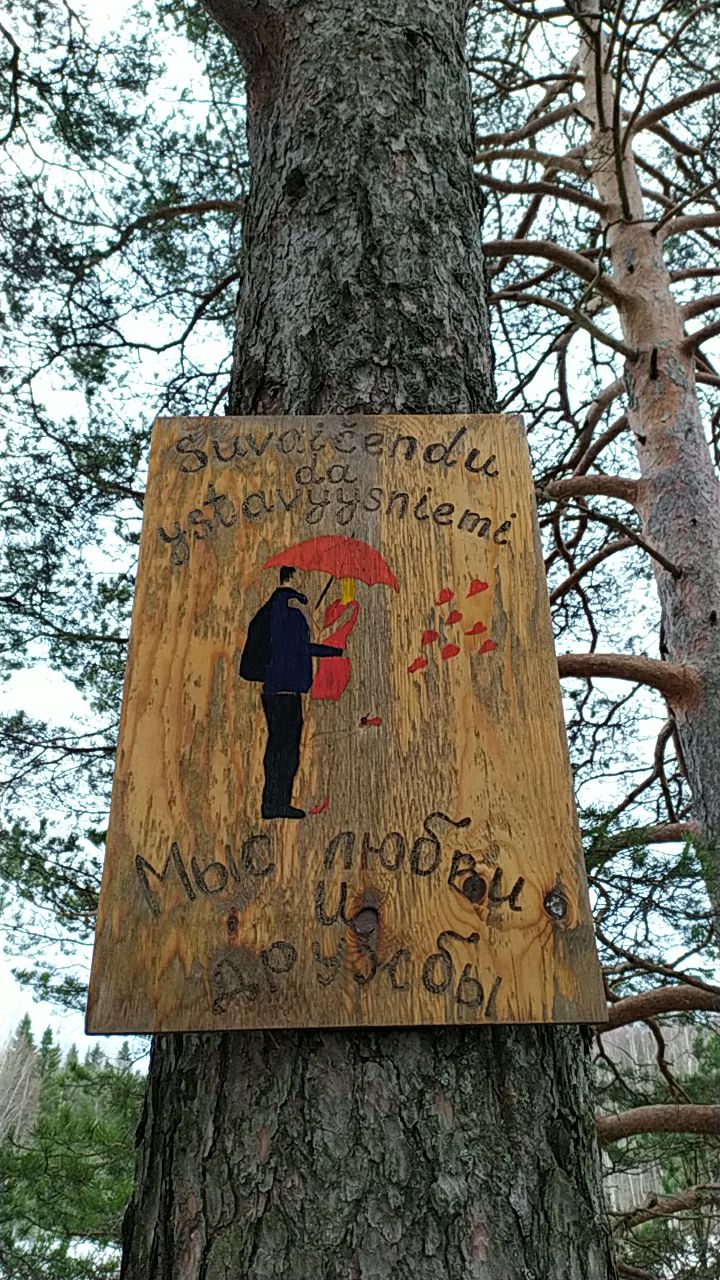 Šuvaičendu
da
ystavyysniemi
Мыс любви
и
дружбы